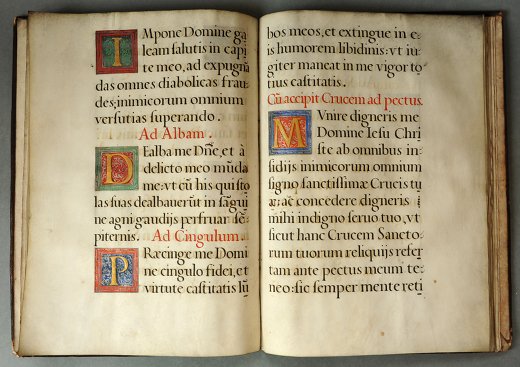 IMpone Domine ga
leam salutis in capi
te meo, ad expugnā
das omnes diabolicas frau
des: inimicorum omnium
versutias superando.
Ad Albam.
DEalba me Dñe, et à
delicto meo mūda
me: vt cū his qui sto
las suas dealbauerūt in sāgui
ne agni gaudijs perfruar sē
piternis. Ad Cingulum.
PRæcinge me Domi
ne cingulo fidei, et
virtute castitatis lū
bos meos, et extingue in e
is humorem libidinis: vt iu
giter maneat in me vigor to
tius castitatis.
Cū accipit Crucem ad pectus.
MVnire digneris me
Domine Iesu Chri
ste ab omnibus in
sidijs inimicorum omnium
signo sanctissimæ Crucis tu
æ: ac concedere digneris
mihi indigno seruo tuo, vt
sicut hanc Crucem Sancto
rum tuorum reliquijs refer
tam ante pectus meum te
neo: sic semper mente reti